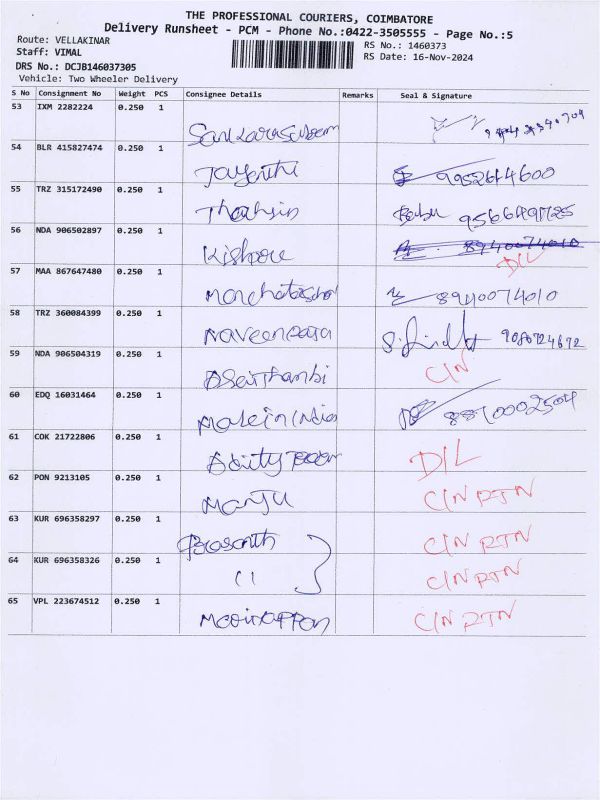 THE PROFESSIONAL COURIERS, COIMBATORE
Delivery Runsheet - PCM - Phone No.:0422-3505555 - Page No.:5
Route: VELLAKINAR
RS No.: 1460373
Staff: VIMAL
RS Date: 16-Nov-2024
DRS No.: DCJB146037305
Vehicle: Two Wheeler Delivery
S No Consignment No Weight PCS Consignee Details Remarks Seal & Signature
53 IXM 2282224 0.250 1
54 BLR 415827474 0.250 1
Jayanthi 9952644600
55 TRZ 315172490 0.250 1
Thahsin Babu
56 NDA 906502897 0.250 1
Kishore 8940074010
DIL
57 MAA 867647480 0.250 1
8940074010
58 TRZ 360084399 0.250 1
Naveenraja 9080724672
59 NDA 906504319 0.250 1
CIN
60 EDQ 16031464 0.250 1
Make in India
61 COK 21722806 0.250 1
DIL
62 PON 9213105 0.250 1
Manju CIN RTN
63 KUR 696358297 0.250 1
Prasanth CIN RTN
64 KUR 696358326 0.250 1
11 CIN RTN
65 VPL 223674512 0.250 1
CIN RTN